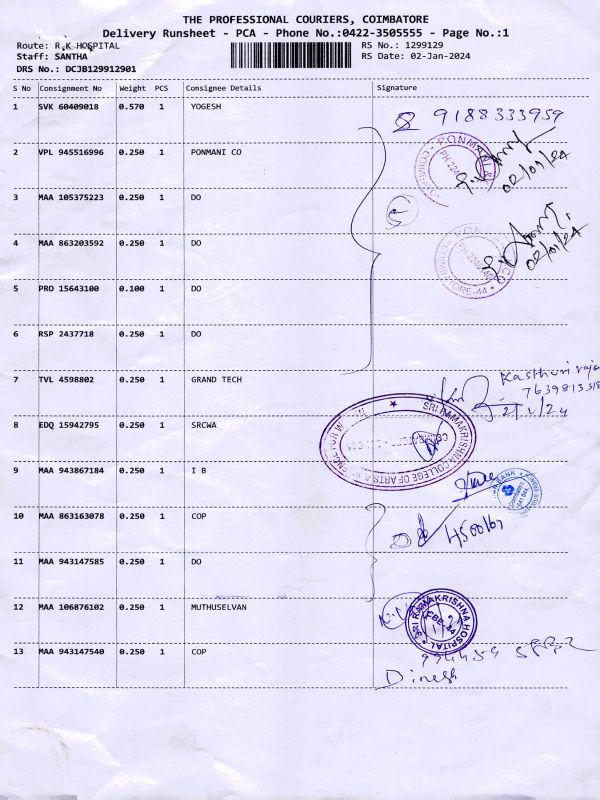 THE PROFESSIONAL COURIERS, COIMBATORE
Delivery Runsheet - PCA - Phone No.:0422-3505555 - Page No.:1
Route: R.K HOSPITAL
RS No.: 1299129
Staff: SANTHA
RS Date: 02-Jan-2024
DRS No.: DCJB129912901
S No Consignment No Weight PCS Consignee Details Signature
1 SVK 60409018 0.570 1 YOGESH
9188333959
2 VPL 945516996 0.250 1 PONMANI CO
02/01/24
3 MAA 105375223 0.250 1 DO
5
4 MAA 863203592 0.250 1 DO
02/01/24
5 PRO 15643100 0.100 1 DO
6 RSP 2437718 0.250 1 DO
7 TVL 4598802 0.250 1 GRAND TECH
Kasthuri raja
2/1/24
8 EDQ 15942795 0.250 1 SRCWA
SRI RAMAKRISHNA COLLEGE OF ARTS & SCIENCE FOR WOMEN
9 MAA 943867184 0.250 1 I B
10 MAA 863163078 0.250 1 COP
11 MAA 943147585 0.250 1 DO
12 MAA 106876102 0.250 1 MUTHUSELVAN
SRI RAMAKRISHNA HOSPITAL
CBE-44
13 MAA 943147540 0.250 1 COP
Dinesh